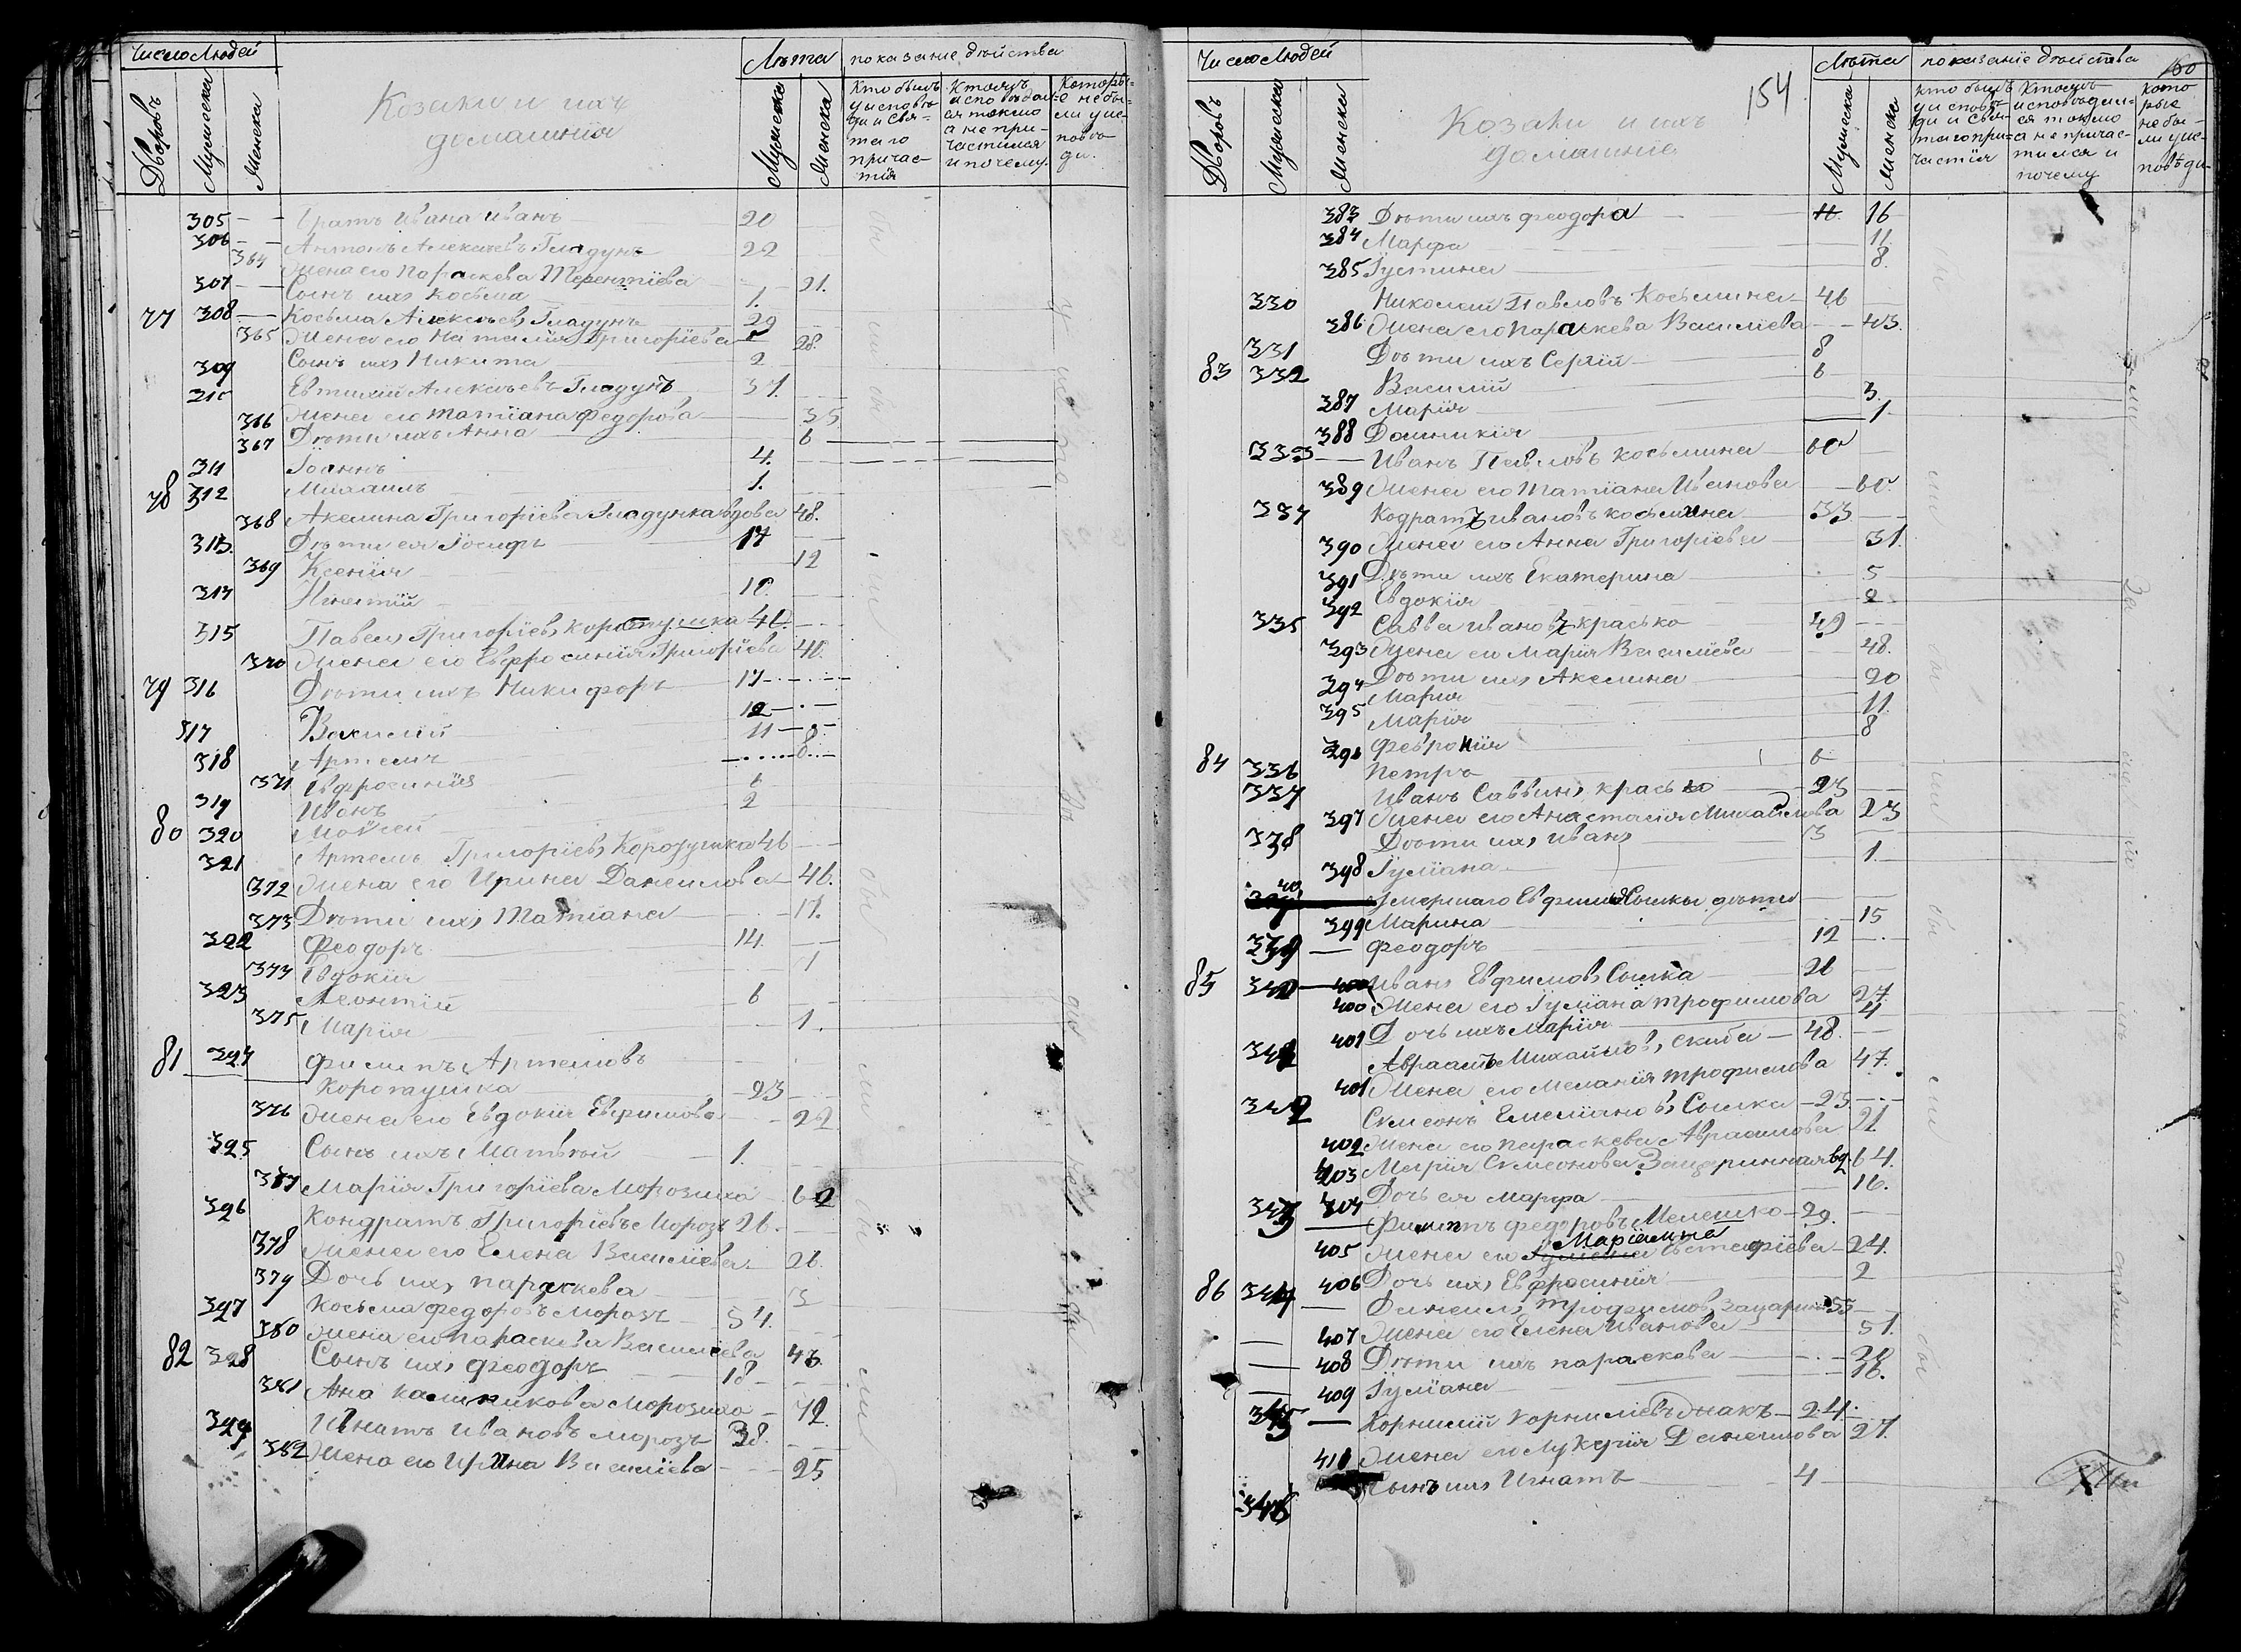 Число Людей
Лѣта
показание дѣйства
Дворовъ
Мужеска
Женска
Козаки и ихъ
домашнїя
Мужеска
Женска
Кто былъ
у исповѣ-
ди и Свя-
таго
причас-
тїя
Кто
исповѣдал-
ся токмо
а не при-
частился
и почему.
Которы-
е не бы-
ли у ис-
повѣ-
ди.
305 братъ Ивана Иванъ 20
306 Антонъ Алексѣевъ Гладунъ 22
364 Жена его Параскева Терентїева 21.
307 Сынъ ихъ Косьма 1.
77 308 Косьма Алексѣевъ Гладунъ 29
365 Жена его Наталїя Григорїева 28.
309 Сынъ ихъ Никита 2
310 Евтихий Алексѣевъ Гладунъ 31.
366 Жена его Татїана Федорова 35
367 Дѣти ихъ Анна 6
311 Іоаннъ 4.
78 312 Михаилъ 1.
368 Акелина Григорїева Гладунка вдова 48.
313 Дѣти ея Іосифъ 17
369 Ксенїя 12
314 Игнатїй 10.
315 Павелъ Григорїевъ Коротушка 40.
370 Жена его Евфросинїя Григорїева 40.
79 316 Дѣти ихъ Никифоръ 17
317 Василий 12
11 8
318 Артемъ 8
371 Евфросинїя
319 Иванъ 6
80 320 Мойсей 2
321 Артемъ Григорїевъ Коротушка 46
372 Жена его Ирина Данеилова 46.
373 Дѣти ихъ Татїана 17.
322 Феодоръ 14.
374 Евдокїя 1
323 Леонтїй 6
375 Марїя 1.
81 324 Филипъ Артемовъ
Коротушка 23
376 Жена его Евдокїя Евфимова 22
325 Сынъ ихъ Матвѣй 1.
377 Марїя Григорїева Морозиха 62
326 Кондратъ Григорїевъ Морозъ 26.
378 Жена его Елена Василїева 26.
379 Дочь ихъ Параскева 3
327 Косьма Федоровъ Морозъ 54.
380 Жена его Параскева Василїева 43.
82 328 Сынъ ихъ Феодоръ 18
381 Ана Калиникова Морозиха 72.
329 Игнатъ Ивановъ Морозъ 38.
382 Жена его Ирина Василїева 25
Число Людей
154
Лѣта
показанїе дѣйства
150
Дворовъ
Мужеска
Женска
Козаки и ихъ
домашние
Мужеска
Женска
кто былъ
у исповѣ-
ди и Свя-
таго при-
частїя
Кто
исповѣдал-
ся токмо
а не причас-
тился и
почему
Кото
рые
не бы-
ли у ис-
повѣди
383 Дѣти ихъ Феодора 16
384 Марфа 11.
385 Іустина 8.
330 Николай Павловъ Косьмина 46
386 Жена его Параскева Василїева 43.
331 Дѣти ихъ Сергїй 8
83 332 Василїй 6
387 Марїя 3.
388 Домникїя 1.
333 Иванъ Павловъ Косьмина 60
389 Жена его Татїана Иванова 60.
334 Кодратъ Ивановъ Косьмина 33
390 Жена его Анна Григорїева 31.
391 Дѣти ихъ Екатерина 5
392 Евдокїя 2
335 Савва Ивановъ Красько 49
393 Жена его Марїя Василїева 48.
394 Дѣти ихъ Акелина 20
Марїя 11.
395 Марїя 8
396 Феврония
84 336 Петръ 6
337 Иванъ Саввинъ Красько 23
397 Жена его Анастасїя Михайлова 23
338 Дѣти ихъ Иванъ 3
398 Іулїана 1.
Умершаго Евфима Сошки дѣти
399 Марина 15
339 Феодоръ 12
85 340 Иванъ Евфимовъ Сошка 26
400 Жена его Іулїана Трофимова 27.
401 Дочь ихъ Марїя 4
341 Авраамъ Михайловъ Скиба 48.
401 Жена его Меланїя Трофимова 47.
342 Симеонъ Емелїановъ Сошка 23
402 Жена его Параскева Авраамова 21
403 Марїя Симеонова вд. 64.
404 Дочь ея Марфа 16.
343 Филипъ Федоровъ Мелешко 29.
Марїамна
405 Жена его Евстафїева 24.
406 Дочь ихъ Евфросинїя 2
86 344 Данеилъ Трофимовъ 55
407 Жена его Елена Иванова 51.
408 Дѣти ихъ Параскева 20
409 Іулїана 16.
345 Корнилїй Корнилїевъ 24.
410 Жена его Лукерїя Данеилова 27.
346 Сынъ ихъ Игнатъ 4